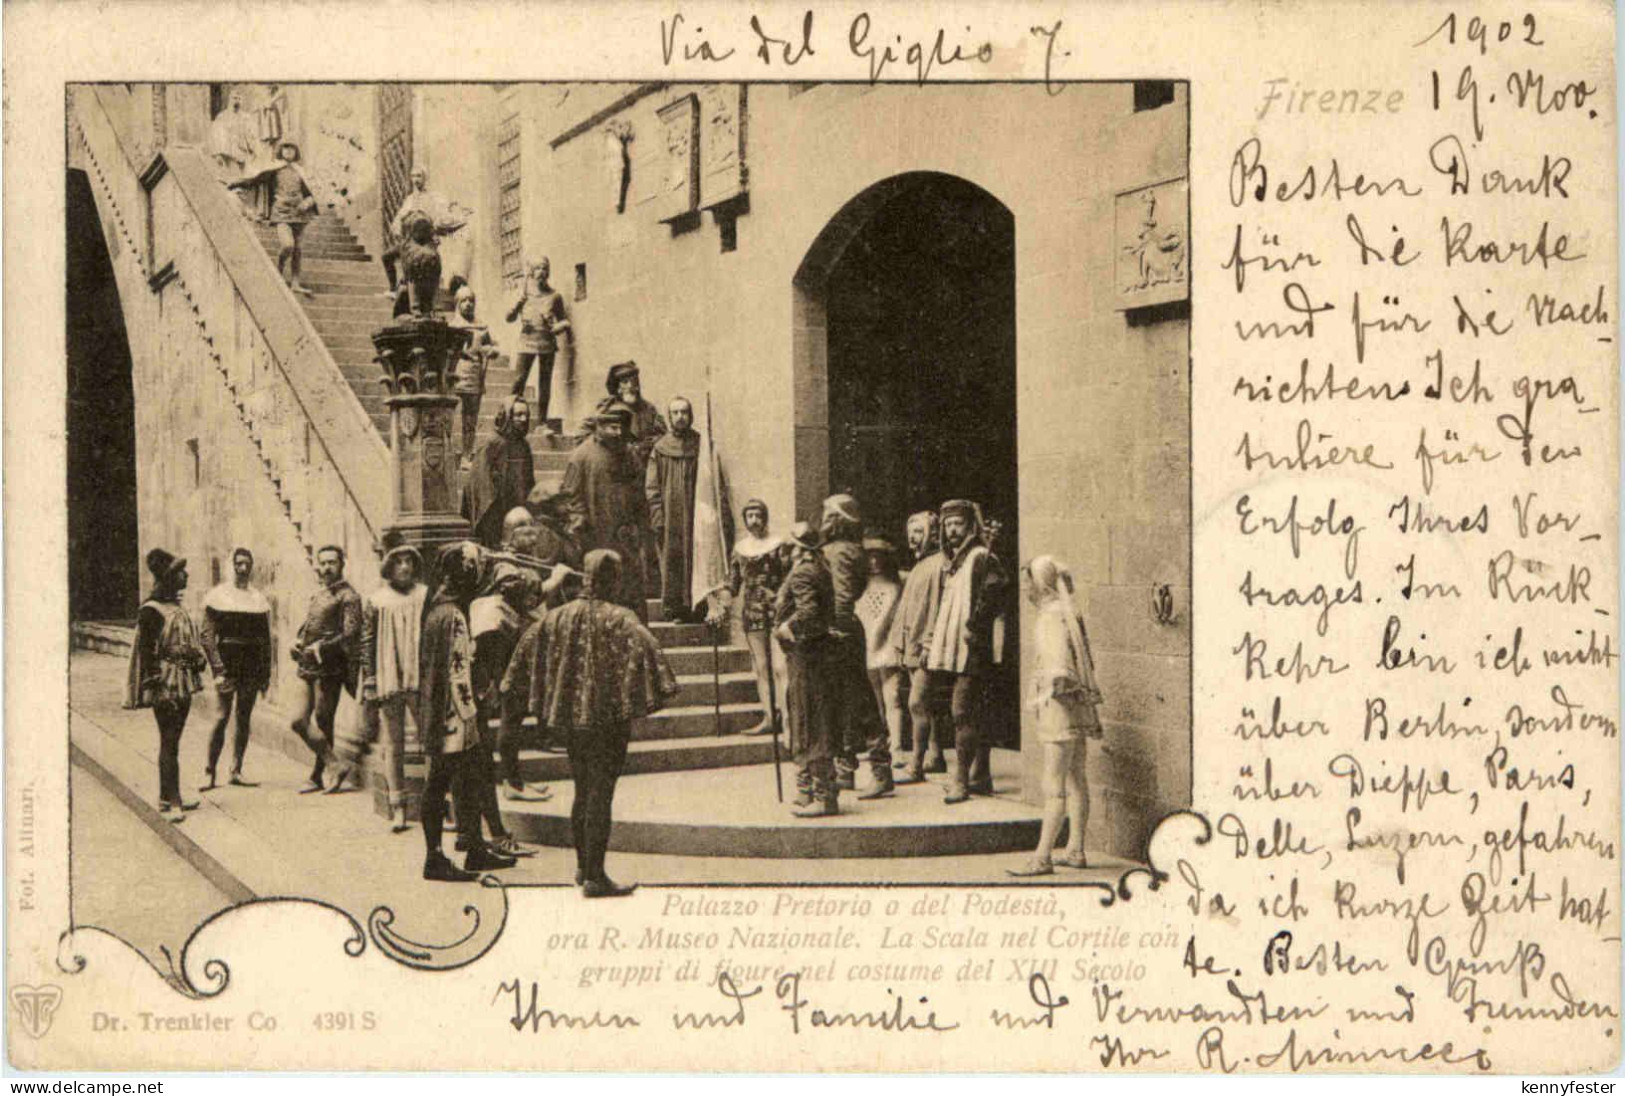 Via del Giglio 7.
1902
Firenze 19. Nov.
Besten Dank
für die Karte
und für die Nach-
richten. Ich gra-
tuliere für den
Erfolg Ihres Vor-
trages. Im Rück-
kehr bin ich nicht
über Berlin, sondern
über Dieppe, Paris,
Delle, Luzern, gefahren
da ich kurze Zeit hat-
te. Besten Gruß
Ihnen und Familie und Verwandten und Freunden
Ihr R. Minucci
Palazzo Pretorio o del Podestà,
ora R. Museo Nazionale. La Scala nel Cortile con
gruppi di figure nel costume del XIII Secolo
Fot. Alinari.
Dr. Trenkler Co 4391 S
www.delcampe.net
kennyfester